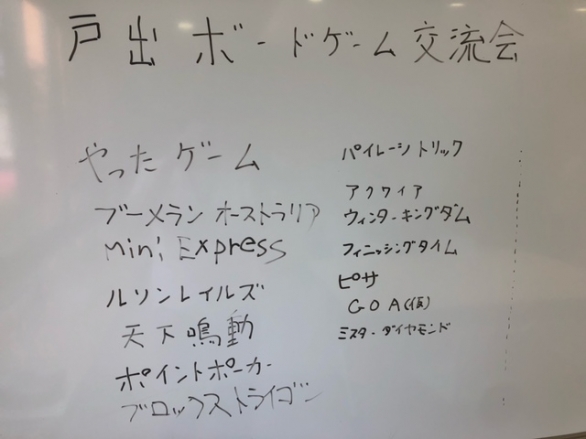 戸出 ボードゲーム 交流会
やったゲーム
ブーメラン オーストラリア
Mini Express
ルソンレイルズ
天下鳴動
ポイントポーカー
ブロックストライゴン
パイレーツトリック
アクワイア
ウィンターキングダム
フィニッシングタイム
ピサ
GOA(仮)
ミスターダイヤモンド